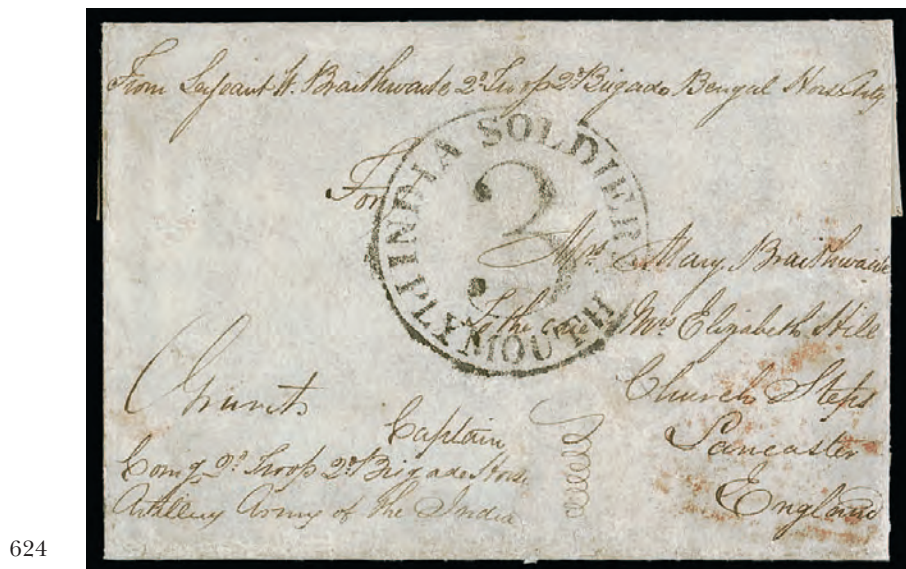 From Serjeant W. Braithwaite 2d Troop 2d Brigade Bengal Horse Arty
INDIA SOLDIERS
3
PLYMOUTH
For
Mrs. Mary Braithwaite
To the care Mrs Elizabeth Hill
Church Steps
Lancaster
England
Captain
Comg 2d Troop 2d Brigade Horse
Artillery Army of the India
624